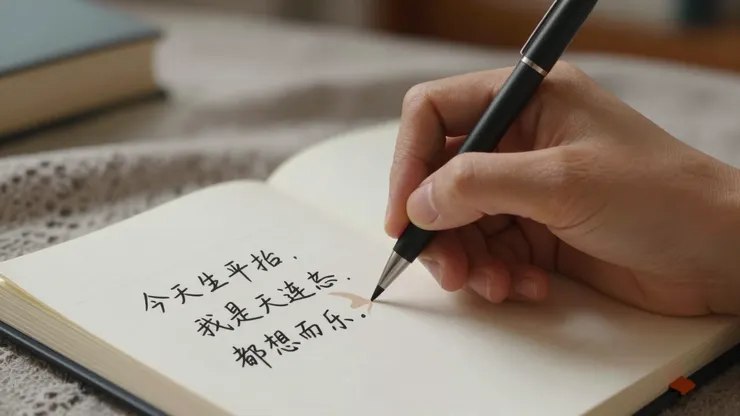 今天生平抬.
我是天连态.
都想而乐.